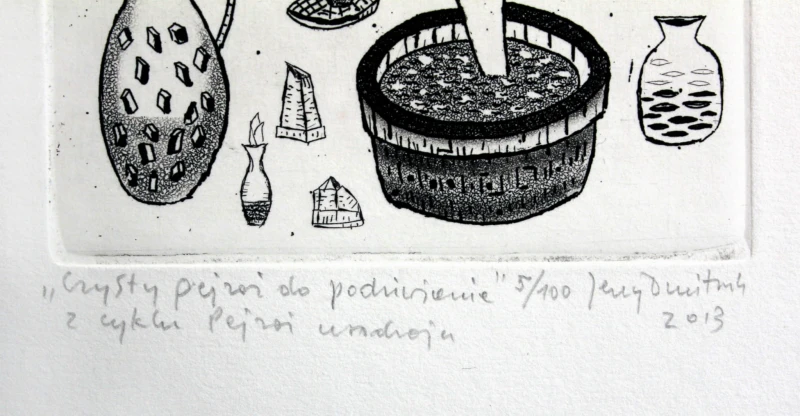 „Czysty pejzaż do podziwiania” 5/100 Jerzy Dmitruk
z cyklu Pejzaż urodzaju 2013